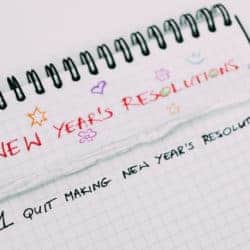 NEW YEAR'S RESOLUTIONS
1 QUIT MAKING NEW YEAR'S RESOLUT